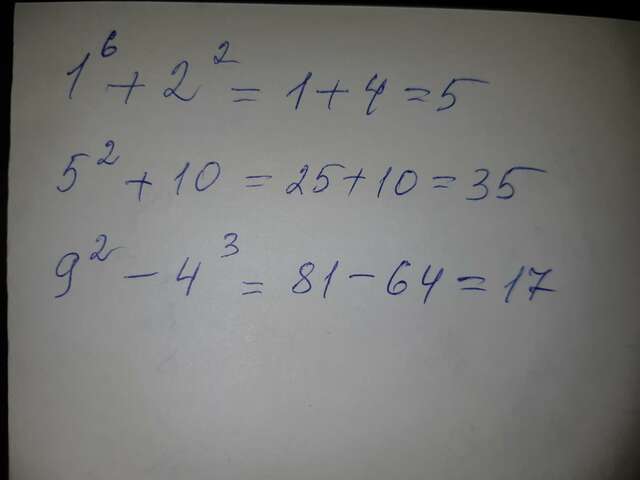 1⁶ + 2² = 1 + 4 = 5
5² + 10 = 25 + 10 = 35
9² - 4³ = 81 - 64 = 17